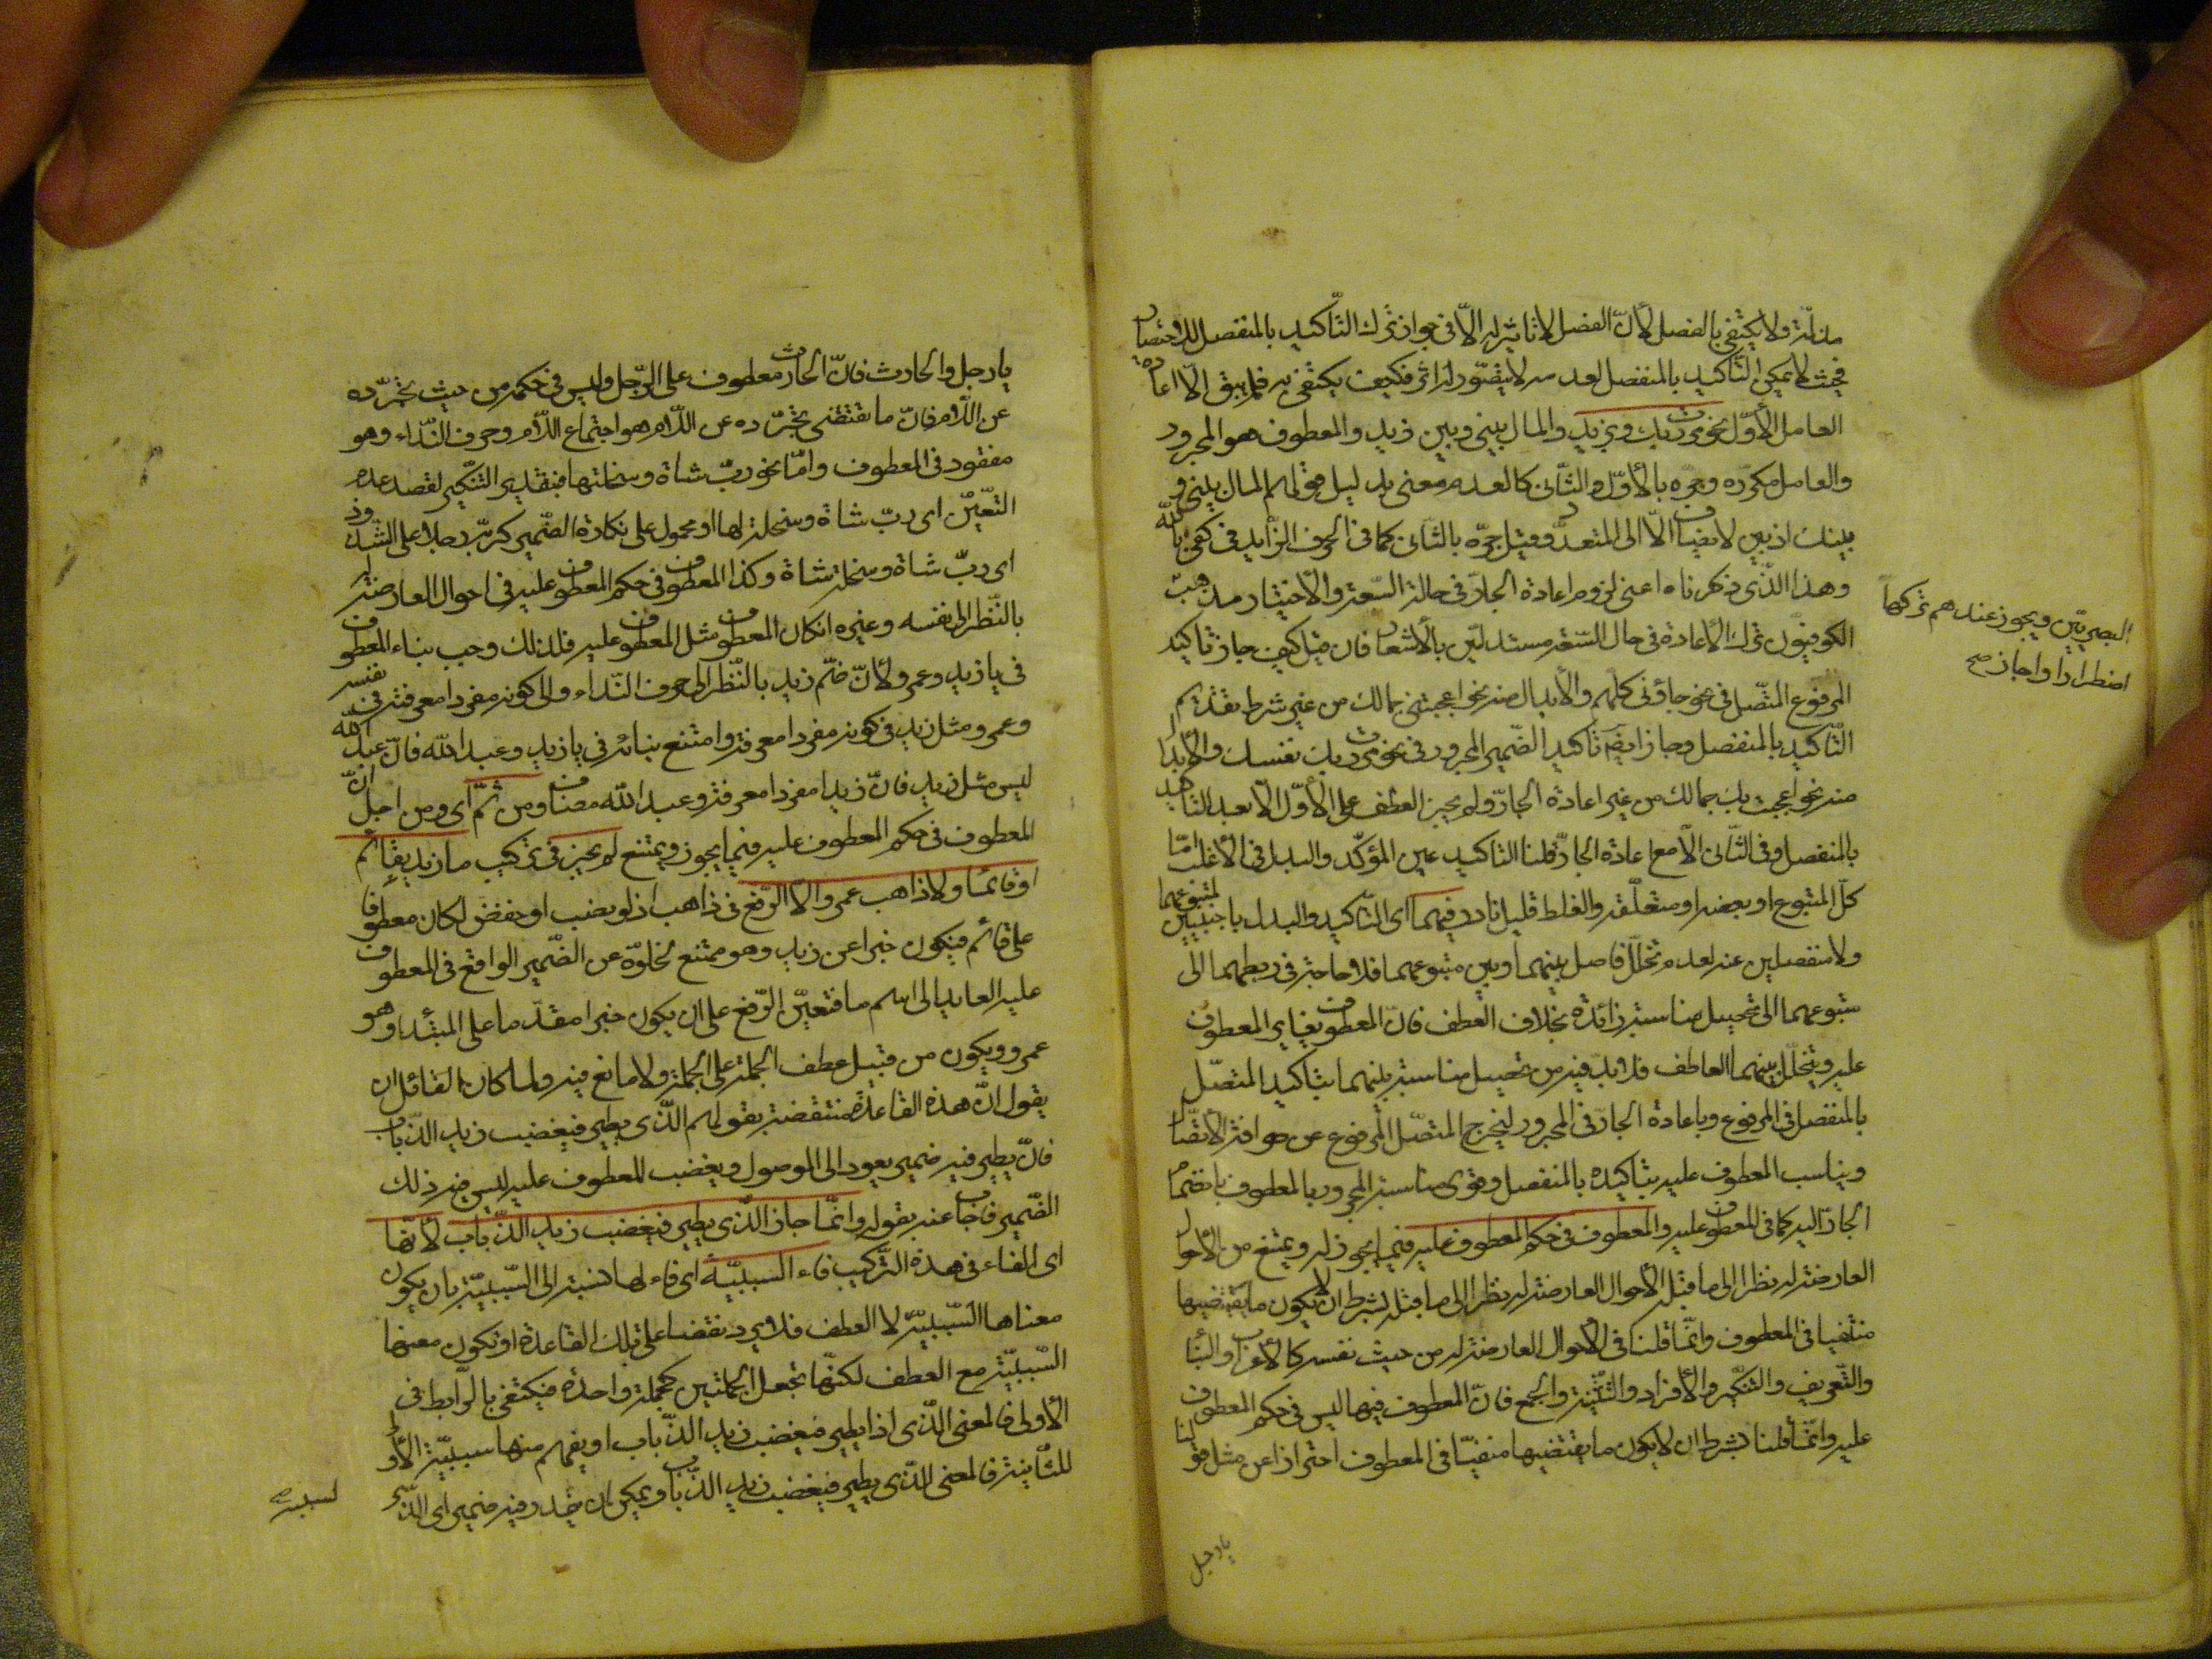 مذلة ولا يكتفى بالفصل لأنّ الفصل لا تاثير له الّا في جواز ترك التّأكيد بالمنفصل للاختصار
فحيث لا يمكن التّأكيد بالمنفصل لعدمه لا يتصوّر له اثر فكيف يكتفى به فلم يبق الّا اعادة
العامل الأوّل نحو مررت بك وبزيد والمال بيني وبين زيد والمعطوف هو المجرور
والعامل مكرّره وجرّه بالأوّل والثّاني كالعدم معنى بدليل قولهم المال بيني و
بينك اذ بين لا يضاف الّا الى المتعدّد وقيل جرّه بالثّاني كما في الحرف الزّايد في كفى بالله
وهذا الذّي ذكرناه اعنى لزوم اعادة الجارّ في حالة السّعة والأختيار مذهب
البصريّين ويجوز عندهم تركها
اضطرارا واجاز صح
الكوفيّون ترك الأعادة في حال السّعة مستدلّين بالأشعار فان قيل كيف جاز تأكيد
المرفوع المتّصل في نحو جاؤني كلّهم والأبدال منه نحو اعجبتني جمالك من غير شرط تقدّيم
التّأكيد بالمنفصل وجاز ايضا تأكيد الضّمير المجرور في نحو مررت بك نفسك والأبدال
منه نحو اعجبت بك جمالك من غير اعادة الجارّ ولم يجيز العطف على الأوّل الّا بعد التأكيد
بالمنفصل وفي الثّاني الّا مع اعادة الجارّ قلنا التاكيد عين المؤكّد والبدل في الأغلب امّا
كلّ المتبوع او بعضه او متعلّقه والغلط قليل نادر فيهما اى التّأكيد والبدل باجنبيّين لمتبوعهما
ولا منفصلين عنه لعدم تخلّل فاصل بينهما وبين متبوعهما فلا حاجة في ربطهما الى
متبوعهما الى تحصيل مناسبة زائدة بخلاف العطف فانّ المعطوف يغاير المعطوف
عليه ويتخلّل بينهما العاطف فلا بدّ فيه من تحصيل مناسبة بينهما بتاكيد المتصّل
بالمنفصل في المرفوع وباعادة الجارّ في المجرور ليخرج المتصّل المرفوع عن صرافة الاتصّال
ويناسب المعطوف عليه بتاكيده بالمنفصل وقوى مناسبة المجرور بالمعطوف بانضمام
الجارّ اليه كما في المعطوف عليه والمعطوف في حكم المعطوف عليه فيما يجوز له ويمتنع من الأحوال
العارضة له نظرا الى ما قبله الأحوال العارضة له نظرا الى ما قبله بشرط ان لا يكون ما يقتضيها
منتفيا في المعطوف وانّما قلنا في الأحوال العارضة له من حيث نفسه كالأعراب والبناء
والتّعريف والتنكّير والأفراد والتّثنية والجمع فانّ المعطوف فيها ليس في حكم المعطوف
عليه وانّما قلنا بشرط ان لا يكون ما يقتضيها منفيّا في المعطوف احترازا عن مثل قولنا
يا رجل
يا رجل والحارث فانّ الحارث معطوف على الرّجل وليس في حكمه من حيث تجرّده
عن اللّام فانّ ما يقتضى تجرّده عن اللّام هو اجتماع اللّام وحرف النّداء وهو
مفقود في المعطوف وامّا نحو ربّ شاة وسخلتها فبتقدير التنّكير لقصد عدم
التعّيّن اى ربّ شاة وسخلة لها او محمول على نكارة الضّمير كربّه رجلا على الشّذوذ
اى ربّ شاة وسخلة شاة وكذا المعطوف في حكم المعطوف عليه في احوال العارضة له
بالنّظر الى نفسه وغيره ان كان المعطوف مثل المعطوف عليه فلذلك وجب بناء المعطوف
في يا زيد وعمرو لأنّ ضّم زيد بالنّظر الى حرف النّداء والى كونه مفردا معرفة في نفسه
وعمرو مثل زيد في كونه مفردا معرفة وامتنع بنائه في يا زيد وعبد الله فانّ عبد الله
ليس مثل زيد فانّ زيدا مفردا معرفة وعبد الله مضاف ومن ثمّ اى ومن اجل انّ
المعطوف في حكم المعطوف عليه فيما يجوز ويمتنع لم يجز في تركيب ما زيد بقائم
او قائما ولا ذاهب عمرو الّا الرّفع في ذاهب اذ لو نصب او خفض لكان معطوفا
على قائم فيكون خبرا عن زيد وهو ممتنع لخلوّه عن الضّمير الواقع في المعطوف
عليه العايد الى اسم ما فتعيّن الرّفع على ان يكون خبرا مقدّما على المبتداء وهو
عمرو ويكون من قبيل عطف الجملة على الجملة ولا مانع فيه ولما كان لقائل ان
يقول انّ هذه القاعدة منتقضة بقولهم الذّى يطير فيغضب زيد الذّباب
فانّ يطير فيه ضمير يعود الى الموصول ويغضب المعطوف عليه ليس فيه ذلك
الضّمير فاجاب عنه بقوله وانّما جاز الذّى يطير فيغضب زيد الذّباب لأنّها
اى الفاء في هذه التّركيب فاء السببيّة اى فاء لها نسبة الى السّببيّة بان يكون
معناها السّببيّة لا العطف فلا يرد نقضا على تلك القاعدة او تكون معنها
السّببيّة مع العطف لكنّها تجعل الجملتين كجملة واحدة فيكتفى بالرّابط في
الأولى فالمعنى الذّى اذا يطير فيغضب زيد الذّباب او يفهم منها سببيّة الأولى
للثّانية فالمعنى الذّى يطير فيغضب زيد الذّباب ويمكن ان يقدر فيه ضمير اى الذّى